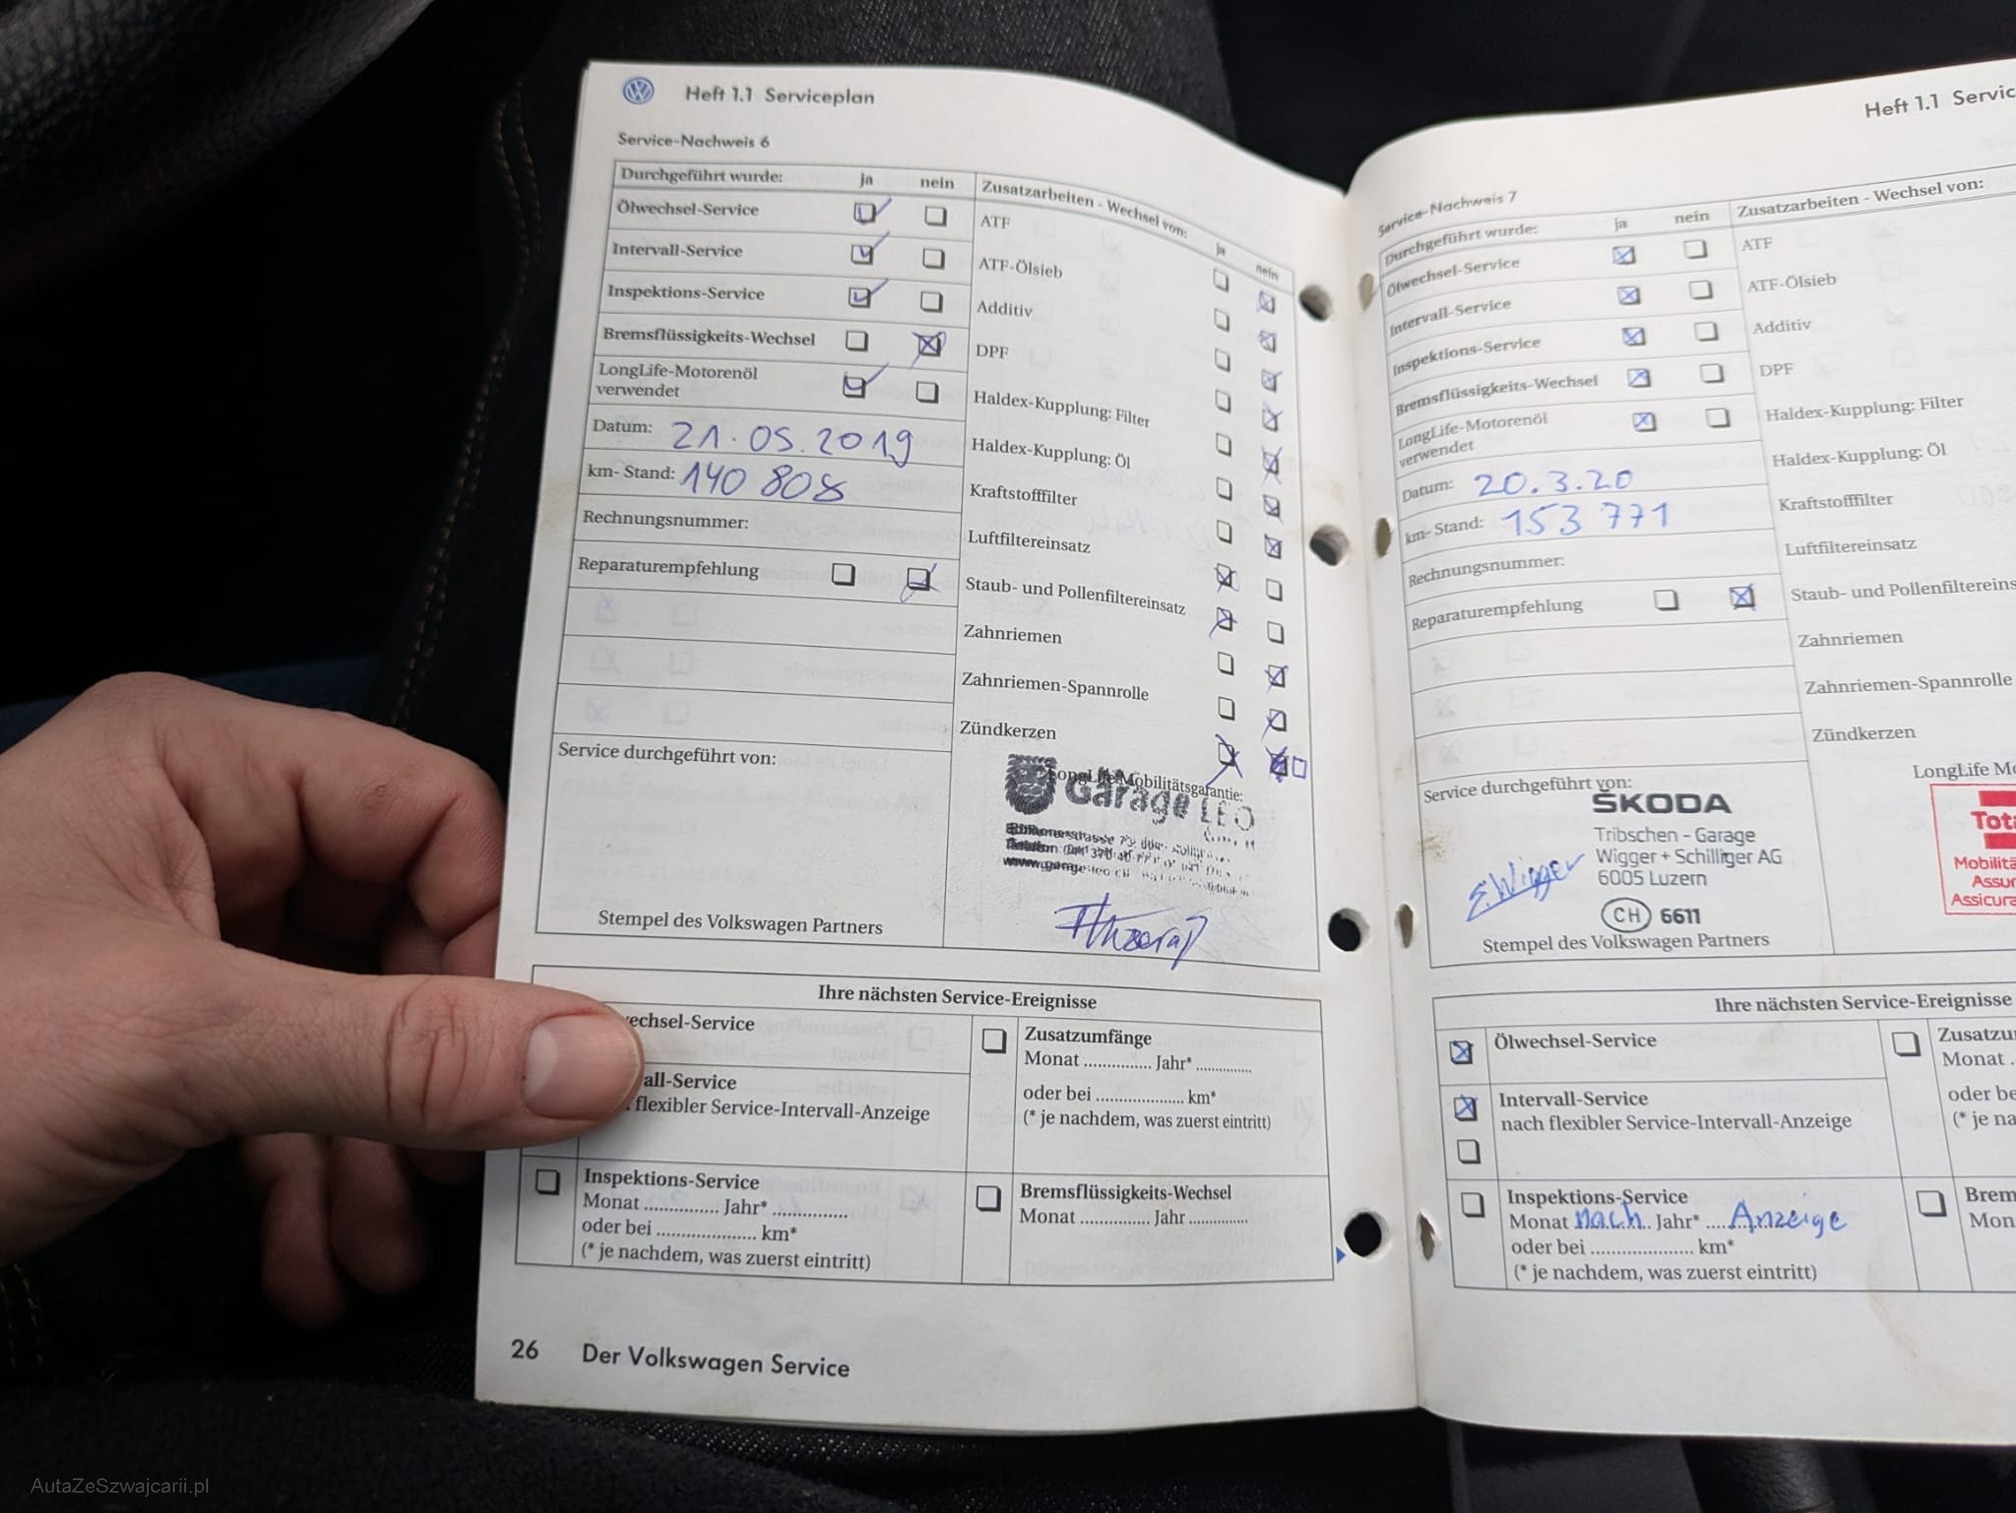 Heft 1.1 Serviceplan
Service-Nachweis 6
Durchgeführt wurde: ja nein
Ölwechsel-Service
Intervall-Service
Inspektions-Service
Bremsflüssigkeits-Wechsel
LongLife-Motorenöl
verwendet
Datum: 21.05.2019
km- Stand: 140 808
Rechnungsnummer:
Reparaturempfehlung
Zusatzarbeiten - Wechsel von: ja nein
ATF
ATF-Ölsieb
Additiv
DPF
Haldex-Kupplung: Filter
Haldex-Kupplung: Öl
Kraftstofffilter
Luftfiltereinsatz
Staub- und Pollenfiltereinsatz
Zahnriemen
Zahnriemen-Spannrolle
Zündkerzen
Service durchgeführt von:
Stempel des Volkswagen Partners
LongLife-Mobilitätsgarantie:
Garage LEO
Ihre nächsten Service-Ereignisse
flexibler Service-Intervall-Anzeige
Inspektions-Service
Monat ............... Jahr* ...............
oder bei .................... km*
(* je nachdem, was zuerst eintritt)
Zusatzumfänge
Monat .............. Jahr* ............
oder bei ................... km*
(* je nachdem, was zuerst eintritt)
Bremsflüssigkeits-Wechsel
Monat .............. Jahr ............
26 Der Volkswagen Service
Heft 1.1
Service-Nachweis 7
Durchgeführt wurde: ja nein
Ölwechsel-Service
Intervall-Service
Inspektions-Service
Bremsflüssigkeits-Wechsel
LongLife-Motorenöl
verwendet
Datum: 20.3.20
km- Stand: 153 771
Rechnungsnummer:
Reparaturempfehlung
Zusatzarbeiten - Wechsel von:
ATF
ATF-Ölsieb
Additiv
DPF
Haldex-Kupplung: Filter
Haldex-Kupplung: Öl
Kraftstofffilter
Luftfiltereinsatz
Staub- und Pollenfiltereins
Zahnriemen
Zahnriemen-Spannrolle
Zündkerzen
Service durchgeführt von:
ŠKODA
Tribschen - Garage
Wigger + Schilliger AG
6005 Luzern
CH 6611
E. Wigger
Stempel des Volkswagen Partners
LongLife Mo
Tota
Mobilitä
Assur
Assicura
Ihre nächsten Service-Ereignisse
Ölwechsel-Service
Intervall-Service
nach flexibler Service-Intervall-Anzeige
Inspektions-Service
Monat nach Jahr* Anzeige
oder bei .................... km*
(* je nachdem, was zuerst eintritt)
Monat .
oder be
(* je na
Brem
Mon
AutaZeSzwajcarii.pl